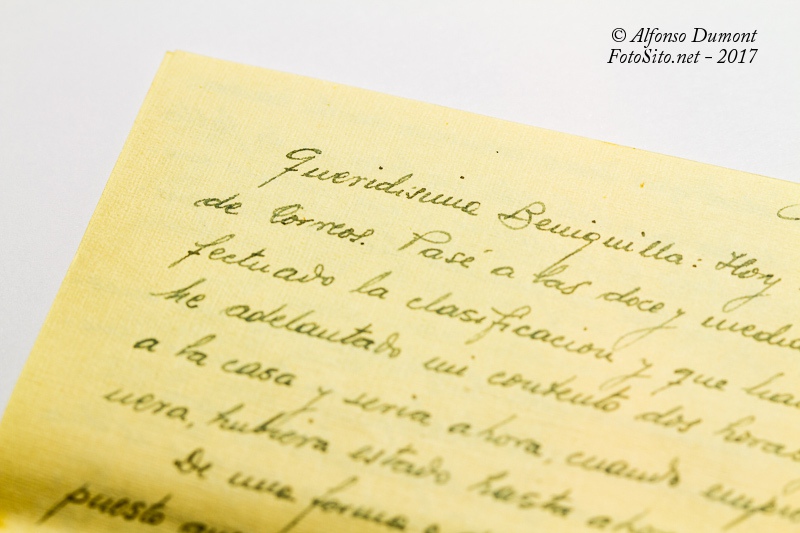 © Alfonso Dumont
FotoSito.net - 2017
Queridisima Beniquilla: Hoy
de Correos. Pasé a las doce y media
fectuado la clasificacion y que ha
he adelantado mi contento dos horas
a la casa y seria ahora, cuando empe
nera, hubiera estado hasta aho
De una forma
puesto que